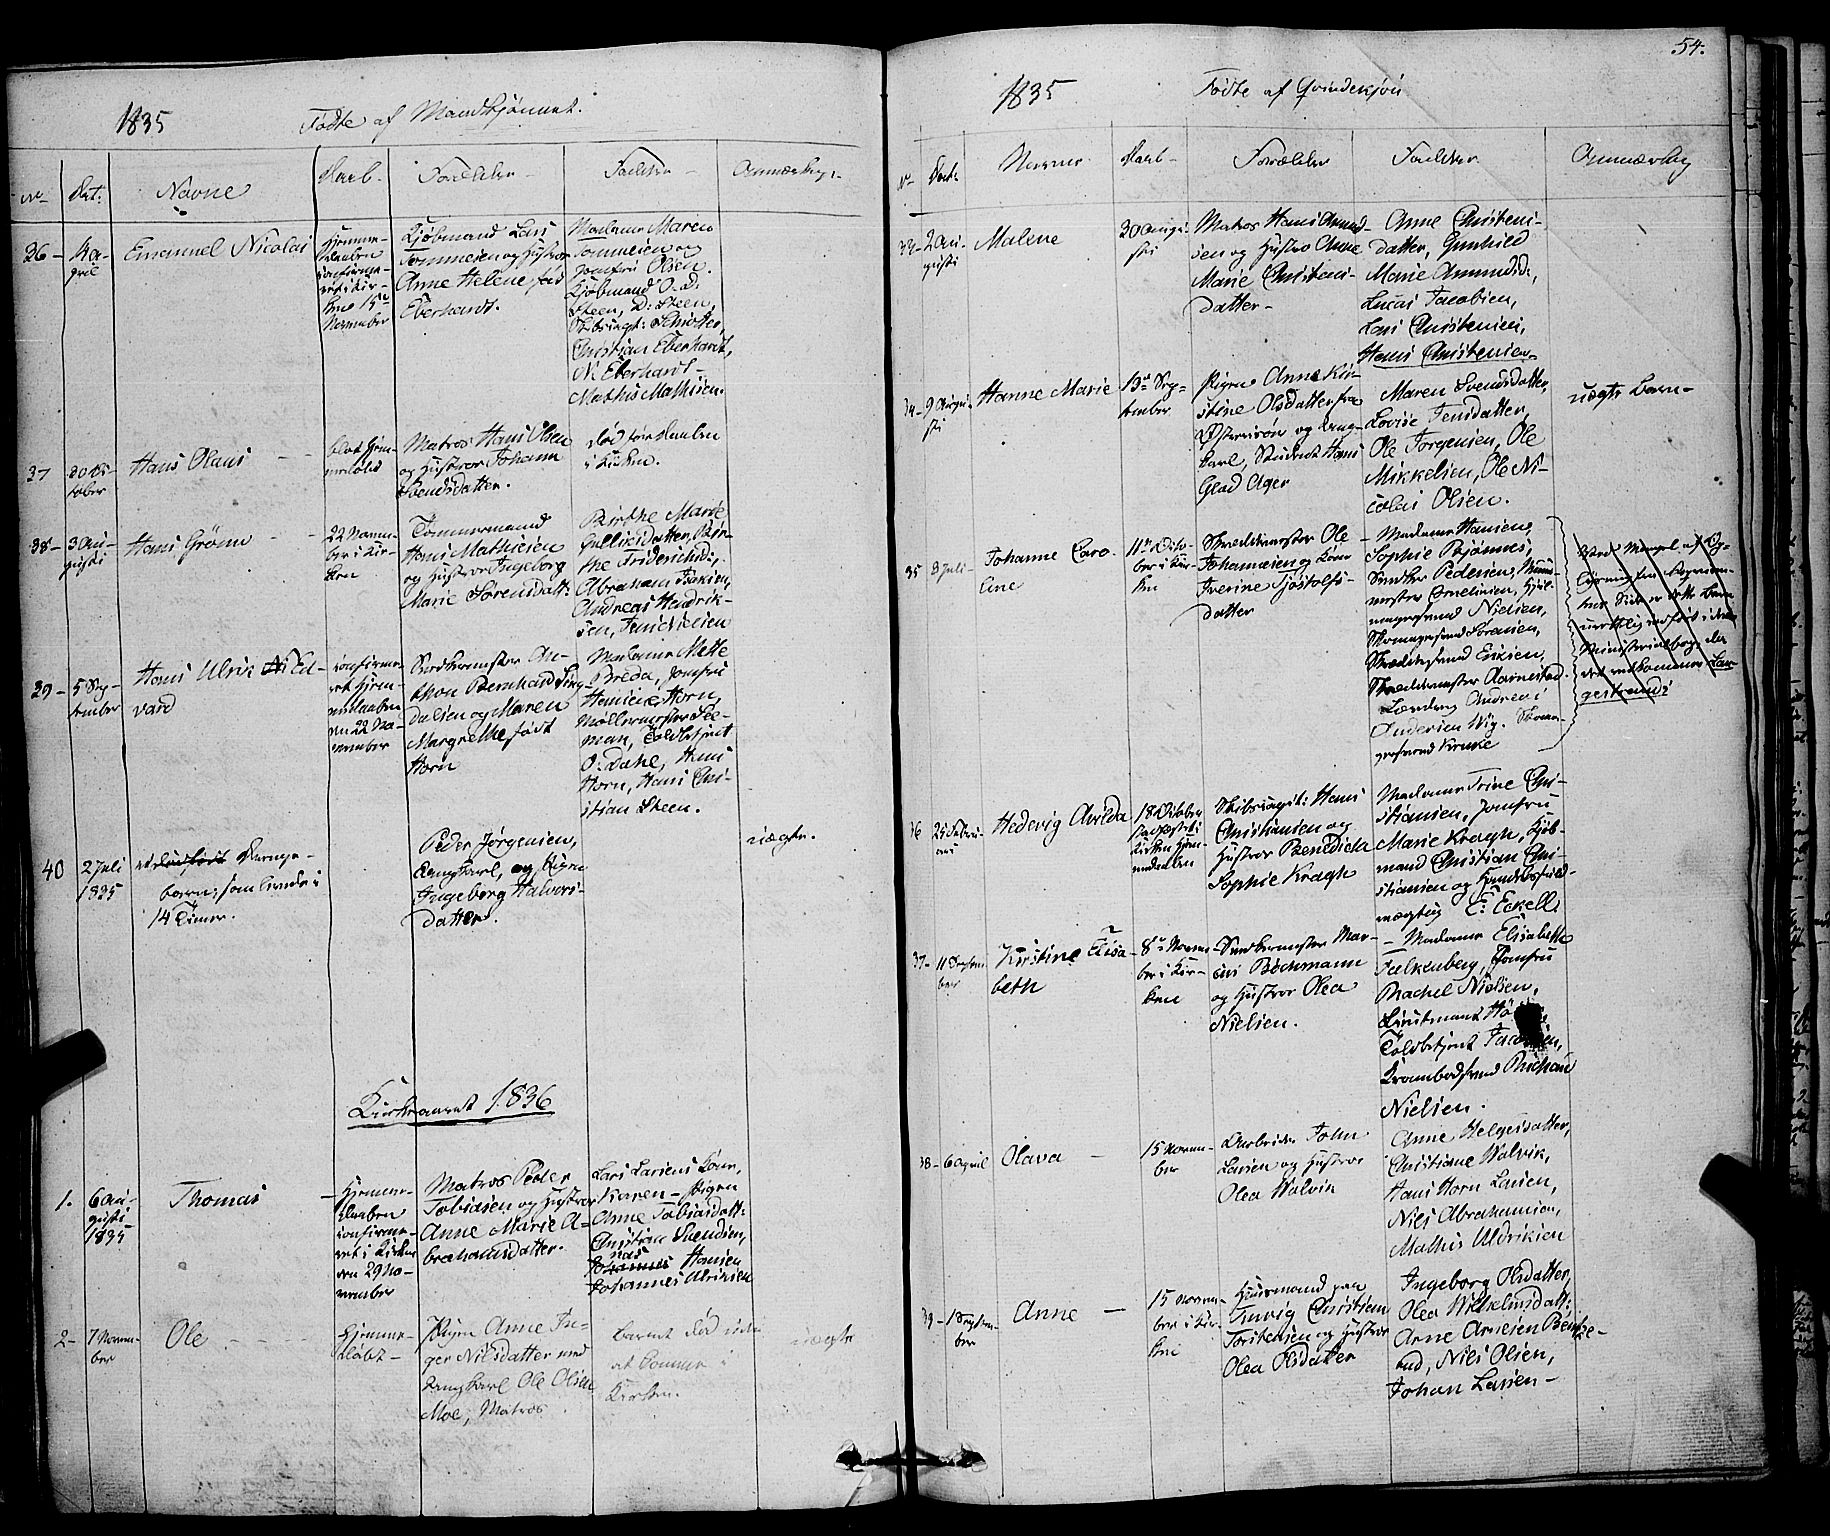 1835
Fødte af Mandkjønnet.
No
Dat:
Navne
Daab-
Forældre-
Faddere-
Anmærkng:
36-
Emanuel Nicolai
Hjemme-
daaben
confirme-
ret i Kir-
ken 15de
November
Kjøbmand Lars
Tommesen og Hustroe
Anne Helene, fød
Eberhardt.
Madame Maren
Tommesen og
Jomfru Olsen.
Kjøbmand O. D.
Steen, D: Steen,
Skibscapt: Schiøtter,
Christian Eberhardt,
N. Eberhardt-
Mathis Mathisen.
37
20 Oc-
tober
Hans Olaus
blot hjem-
medøbt
Matros Hans Olsen
og Hustroe Johann
Svendsdatter.
død før daaben
i Kirken.
38-
3 Au-
gusti
Hans Grønn
22 Novem-
ber i Kir-
ken
Tømmermand
Hans Mathiesen
og Hustroe Ingeborg
Marie Sørensdatt:
Birthe Marie
Gulliksdatter, Bir-
the Friderichsd:,
Abraham Isaksen,
Andreas Hendrik-
sen, Jens Nielsen
39-
5 Sep-
tember
Hans Ulrik Ed-
vard
confirme-
ret hjem-
medaaben
den 22 No-
vember
Snedkermester An-
thon Bernhard Ling-
dalsen og Maren
Margrethe, født
Horn
Madame Mette
Breda, Jomfru
Henicke Horn,
Møllermester See-
man, Toldbetjent
O: Dahl, Hans
Horn, Hans Chri-
stian Steen.
40
2 Juli
1835
Drenge-
barn, som levede i
14 Timer.
Peder Jørgensen,
Ungkarl, og Pigen
Ingeborg Halvors-
datter.
uægte.
Kirkeaaret 1836
1.
6 Au-
gusti
1835
Thomas
Hjemme-
daaben
confirme-
ret i Kirken
den 29 No-
vember
Matros Peder
Tobiasen og Hustroe
Anne Marie A-
brahamsdatter.
Lars Larsens Kone,
Karen- Pigen
Anne Tobiasdatt:
Christian Svendsen,
Hansen
Johannes Ulriksen
2-
7 Novem-
ber
Ole
Hjemme-
døbt-
Pigen Anne In-
ger Nilsdatter med
Ungkarl Ole Olsen
Moe, Matros
Barnet død uden
at komme i
Kirken.
uægte
54.
1835
Fødte af Qvindekjøn
No
Navne
Daab-
Forældre
Faddere
Anmærkng
33-
2 Au-
gusti
Malene
30 Augu-
sti
Matros Hans Amund-
sen og Hustroe Anne
Marie Christens-
datter-
Anne Christens-
datter, Gunhild
Marie Amundsd:,
Lucas Jacobsen,
Lars Christensen,
Hans Christensen-
34-
9 Augu-
sti
Hanne Marie
13de Sep-
tember
Pigen Anne Kir-
stine Olsdatter fra
Østerrisøer og Ung-
karl, Student Hans
Glad Ager
Maren Svendsdatter,
Lovise Jensdatter,
Ole Jørgensen, Ole
Mikkelsen, Ole Ni-
colai Olsen.
uægte Barn-
35
3 Juli-
Johanne Caro-
line
11te Octo-
ber i Kir-
ken
Skreddermester Ole
Johannesen og Kone
Iverine Sjøstolfs-
datter
Madame Hansen,
Sophie Bjønnes,
Snedker Pedersen, Muur-
mester Cornelius­en,
Nielsen,
Sørensen,
Eriksen
Skreddermester Aarnestad
Andreas
Andersen Wig.
Kruke
36
25 Febru-
ari
Hedevig Avilda
18 October
i
Kirken hjem-
medaaben
Skibscapt: Hans
Christiansen og
Hustroe Benedicta
Sophie Kragh
Madame Trine Chri-
stiansen, Jomfru
Marie Kragh, Kjøb-
mand Christian Chri-
stiansen og Handelsfuld-
mægtig C: Eckell.
37-
11 Septem-
ber
Kirstine Elisa-
beth
8de Novem-
ber i Kir-
ken
Snedkermester Mar-
cus Bochmann
og Hustroe Olea
Nielsen.
Madame Elisabeth
Falkenberg, Jomfru
Rachel Nielsen,
Lieutnant
Toldbetjent Jacobsen,
Krambodsvend Richard
Nielsen.
38-
6 April
Olava
15 Novem-
ber
Arbeider John
Larsen og Hustroe
Olea Walvik
Anne Helgesdatter,
Christiane Walvik,
Hans Horn Larsen,
Nils Abrahamsen,
Mathis Uldriksen
39-
1 Septem-
ber
Anne
15 Novem-
ber i Kir-
ken
Huusmand paa
Christian
Torstensen og Hustroe
Olea Olsdatter
Ingeborg Olsdatter,
Olea Wilhelmsdatt:
Arne Arnesen
Nils Olsen,
Johan Larsen-